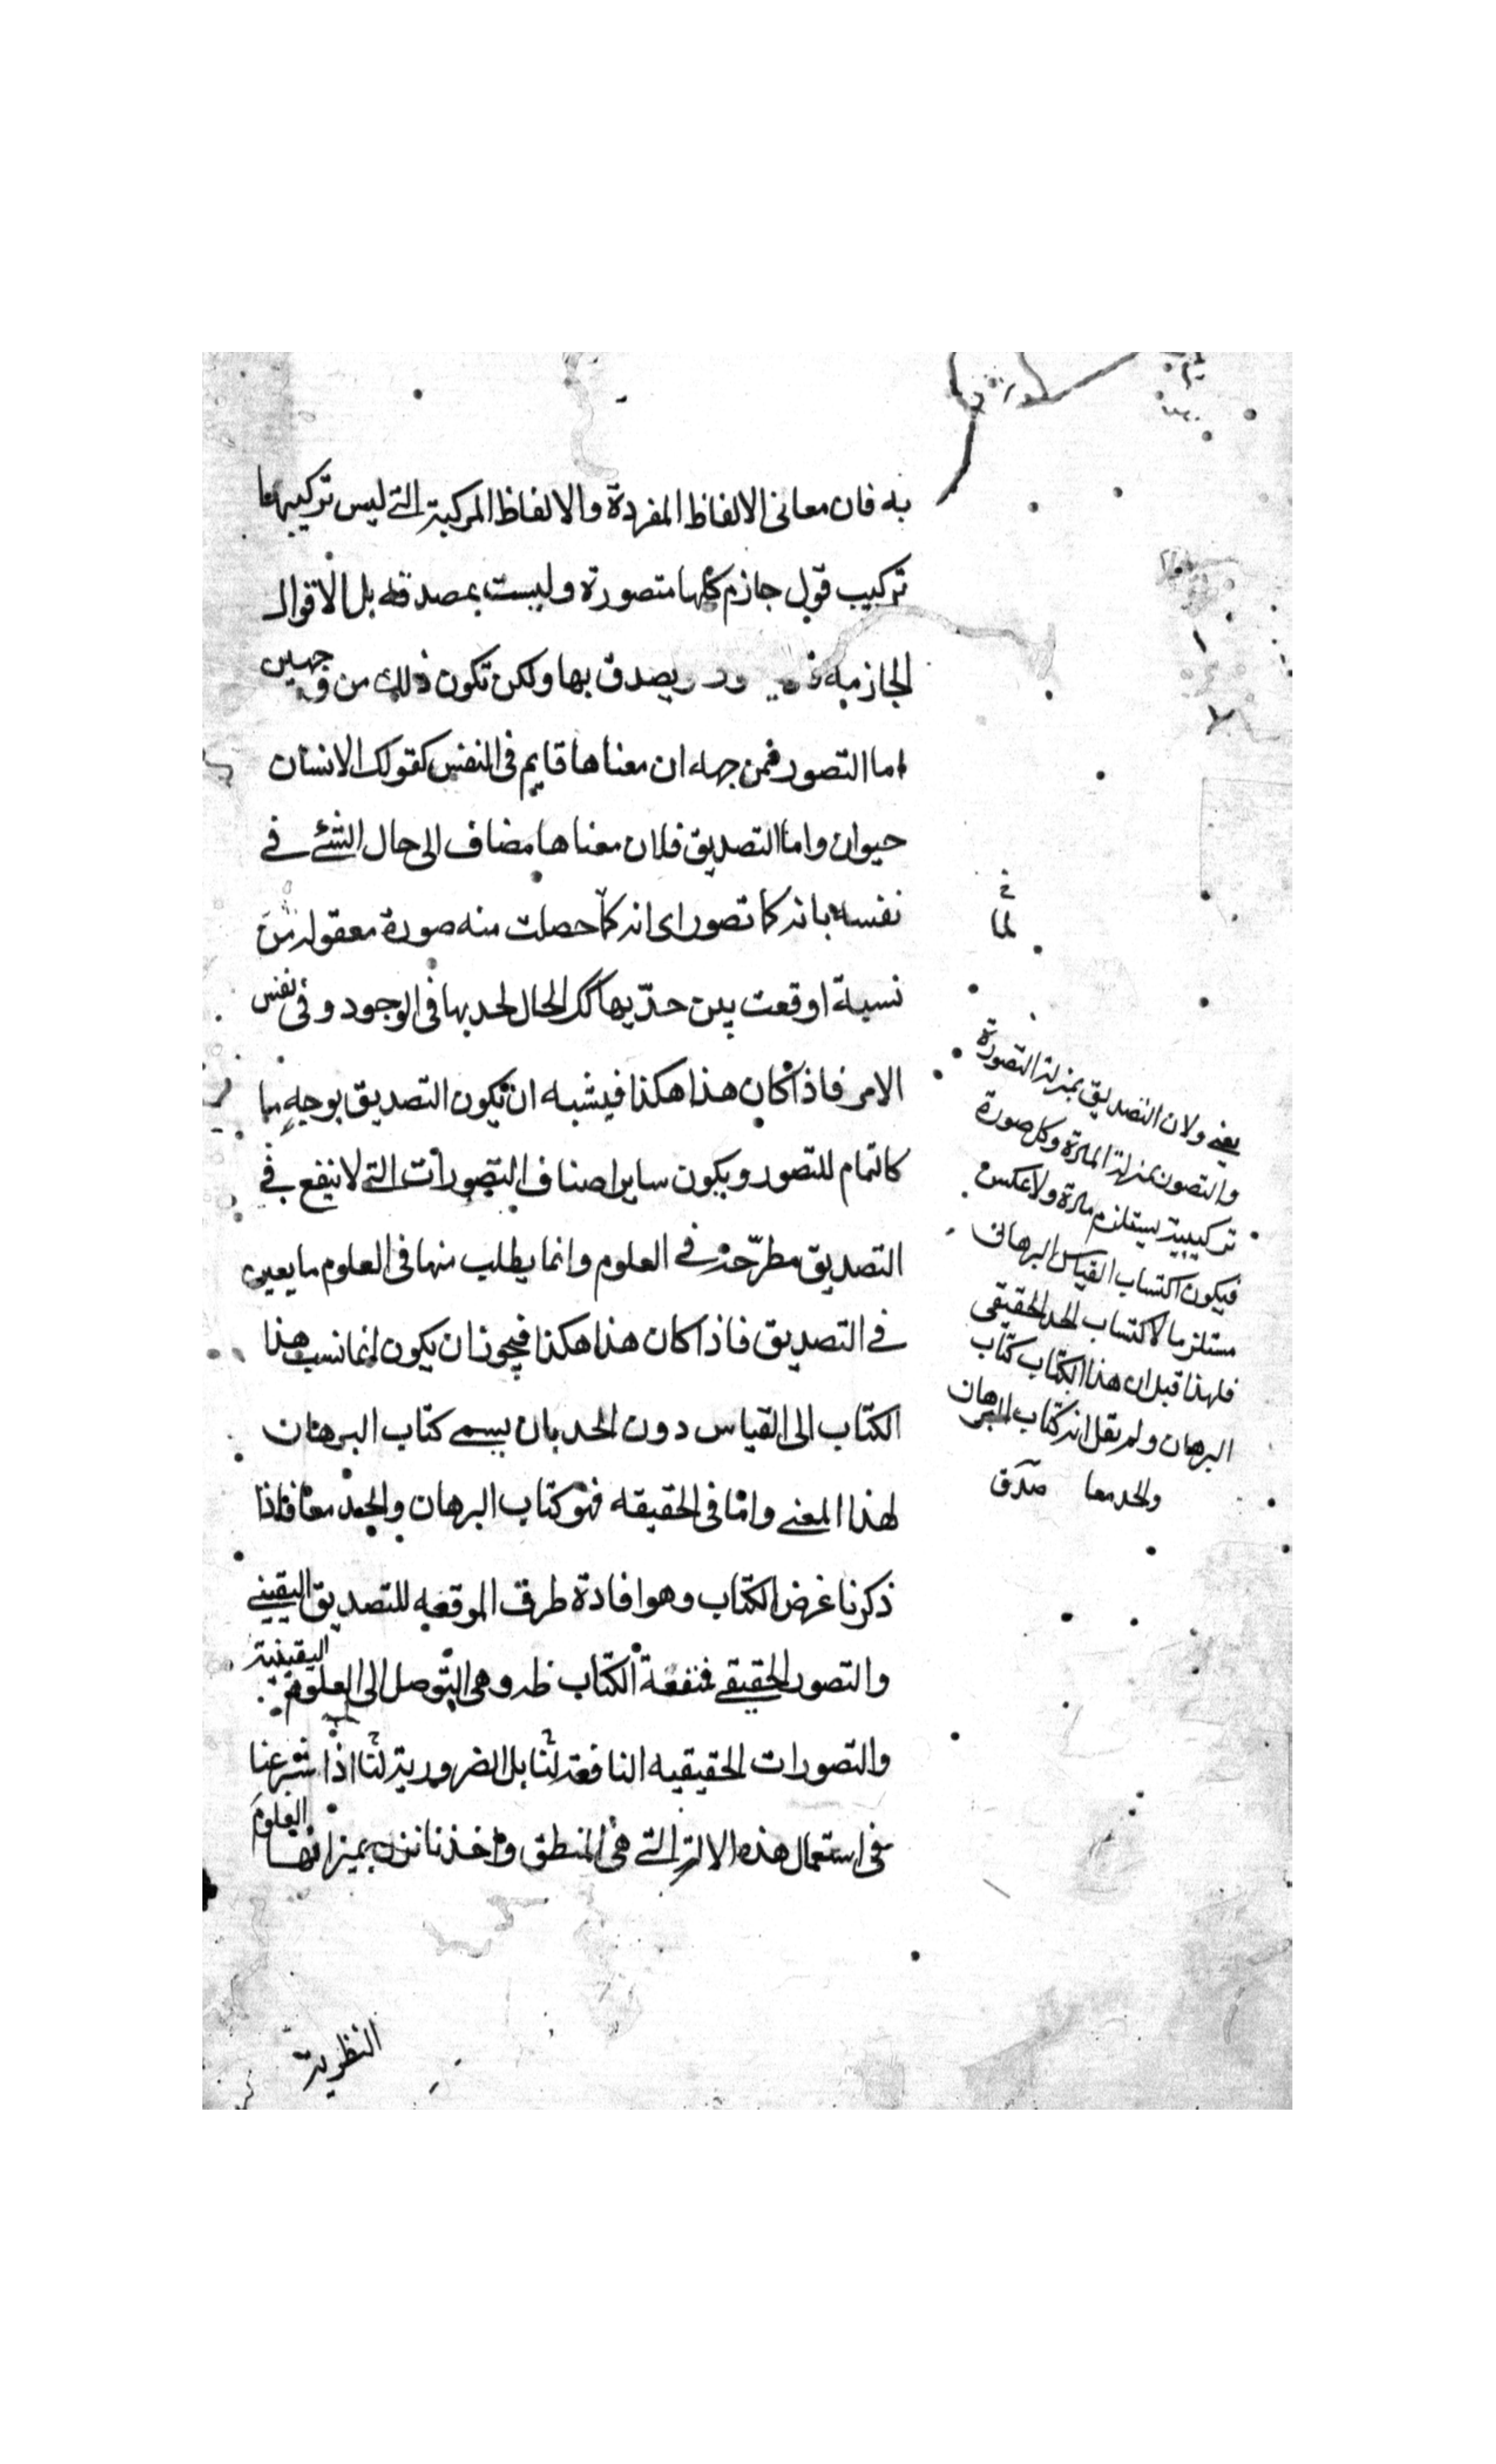 به فان معانى الالفاظ المفردة والالفاظ المركبة التى ليس تركيبها
تركيب قول جازم كلها متصورة وليست بمصدقه بل الاقوال
الجازمه يصدق بها ولكن تكون ذلك من وجهين
اما التصور فمن جهه ان معناها قايم فى النفس كقولك الانسان
حيوان واما التصديق فلان معناها مضاف الى حال الشئ فى
نفسه بانه كما تصور اى انه كما حصلت منه صورة معقولة من
نسبة اوقعت بين حدّيها كك الحال لحديها فى الوجود وفى نفس
الامر فاذا كان هذا هكذا فيشبه ان تكون التصديق بوجهٍ ما
كالتمام للتصور ويكون ساير اصناف التصورات التى لا ينفع فى
التصديق مطرّحة فى العلوم وانما يطلب منها فى العلوم ما يعين
فى التصديق فاذا كان هذا هكذا فيجوز ان يكون انما نسب هذا
الكتاب الى القياس دون الحد بان يسمى كتاب البرهان
لهذا المعنى وامّا فى الحقيقه فهو كتاب البرهان والحد معًا فاذا
ذكرنا غرض الكتاب وهو افادة طرق الموقعه للتصديق اليقينى
والتصور الحقيقى فمنفعة الكتاب ظ وهى التوصل الى العلوم اليقينية
والتصورات الحقيقيه النافعة لنا بل الضرورية لنا اذا شرعنا
فى استعمال هذه الالة التى هى المنطق واخذنا نزن بميزانها العلوم
النظرية
لما
يعنى ولان التصديق بمنزلة التصورة
والتصور بمنزلة المادة وكل صورة
تركيبية يستلزم مادة ولا عكس
فيكون اكتساب القياس البرهانى
مستلزما لاكتساب الحد الحقيقى
فلهذا قيل ان هذا الكتاب كتاب
البرهان ولم يقل انه كتاب البرهان
والحد معا صدق